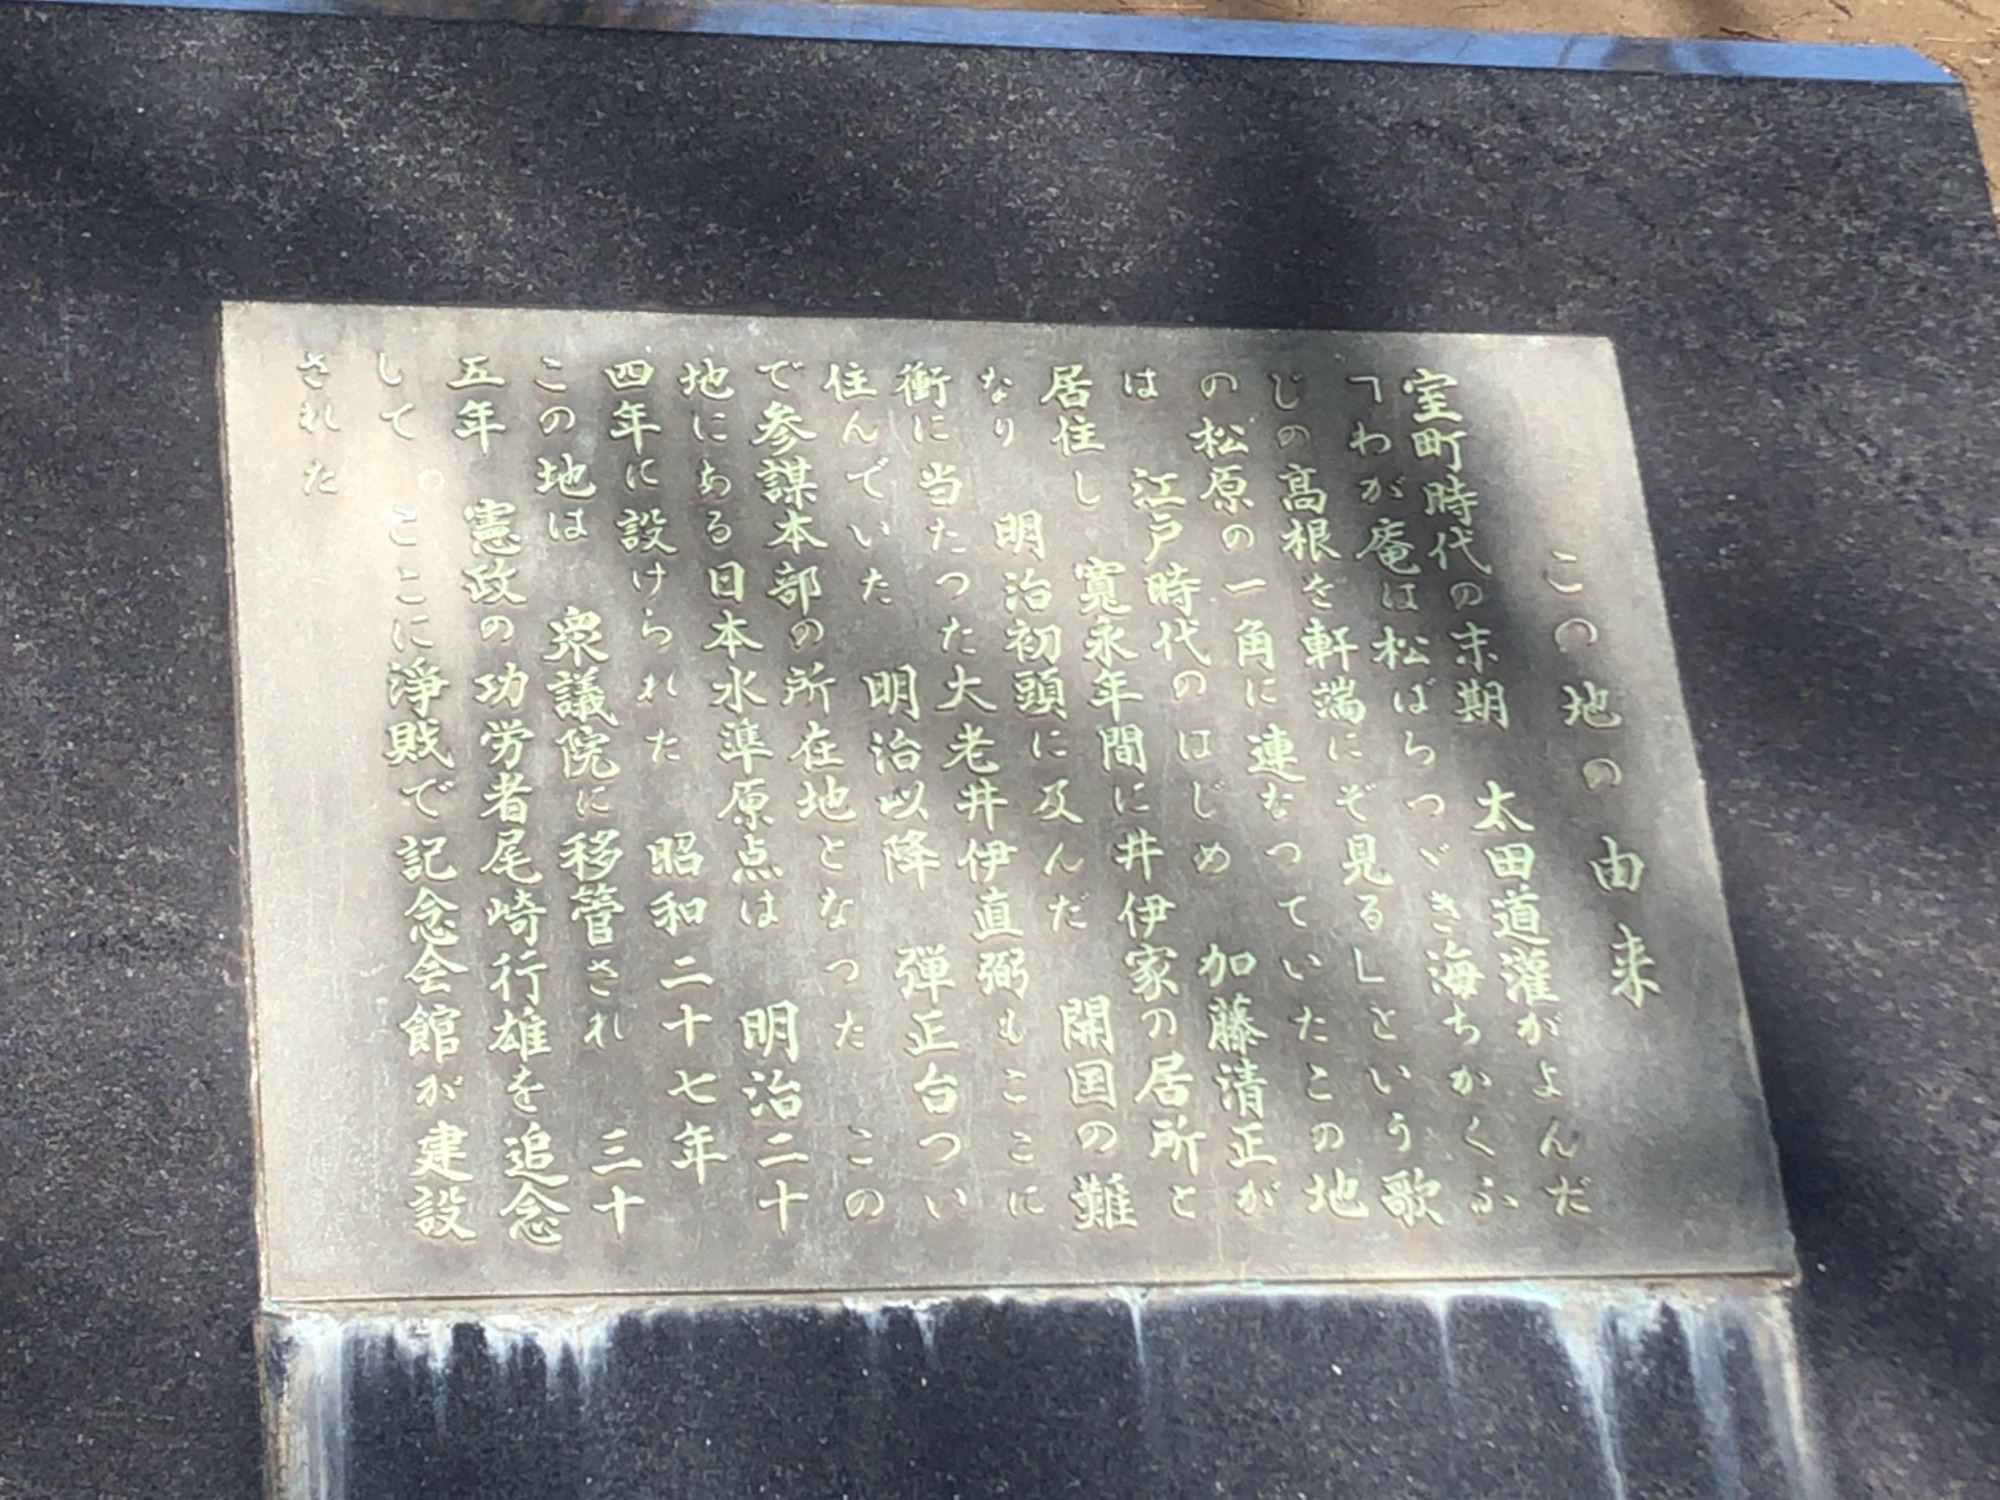 この地の由来
室町時代の末期　太田道灌がよんだ
「わが庵は松ばらつゞき海ちかくふ
じの高根を軒端にぞ見る」という歌
の松原の一角に連なつていたこの地
は　江戸時代のはじめ　加藤清正が
居住し　寛永年間に井伊家の居所と
なり　明治初頭に及んだ　開国の難
衝に当たつた大老井伊直弼もここに
住んでいた　明治以降　弾正台つい
で参謀本部の所在地となつた　この
地にある日本水準原点は　明治二十
四年に設けられた　昭和二十七年
この地は　衆議院に移管され　三十
五年　憲政の功労者尾崎行雄を追念
して　ここに淨財で記念会館が建設
された